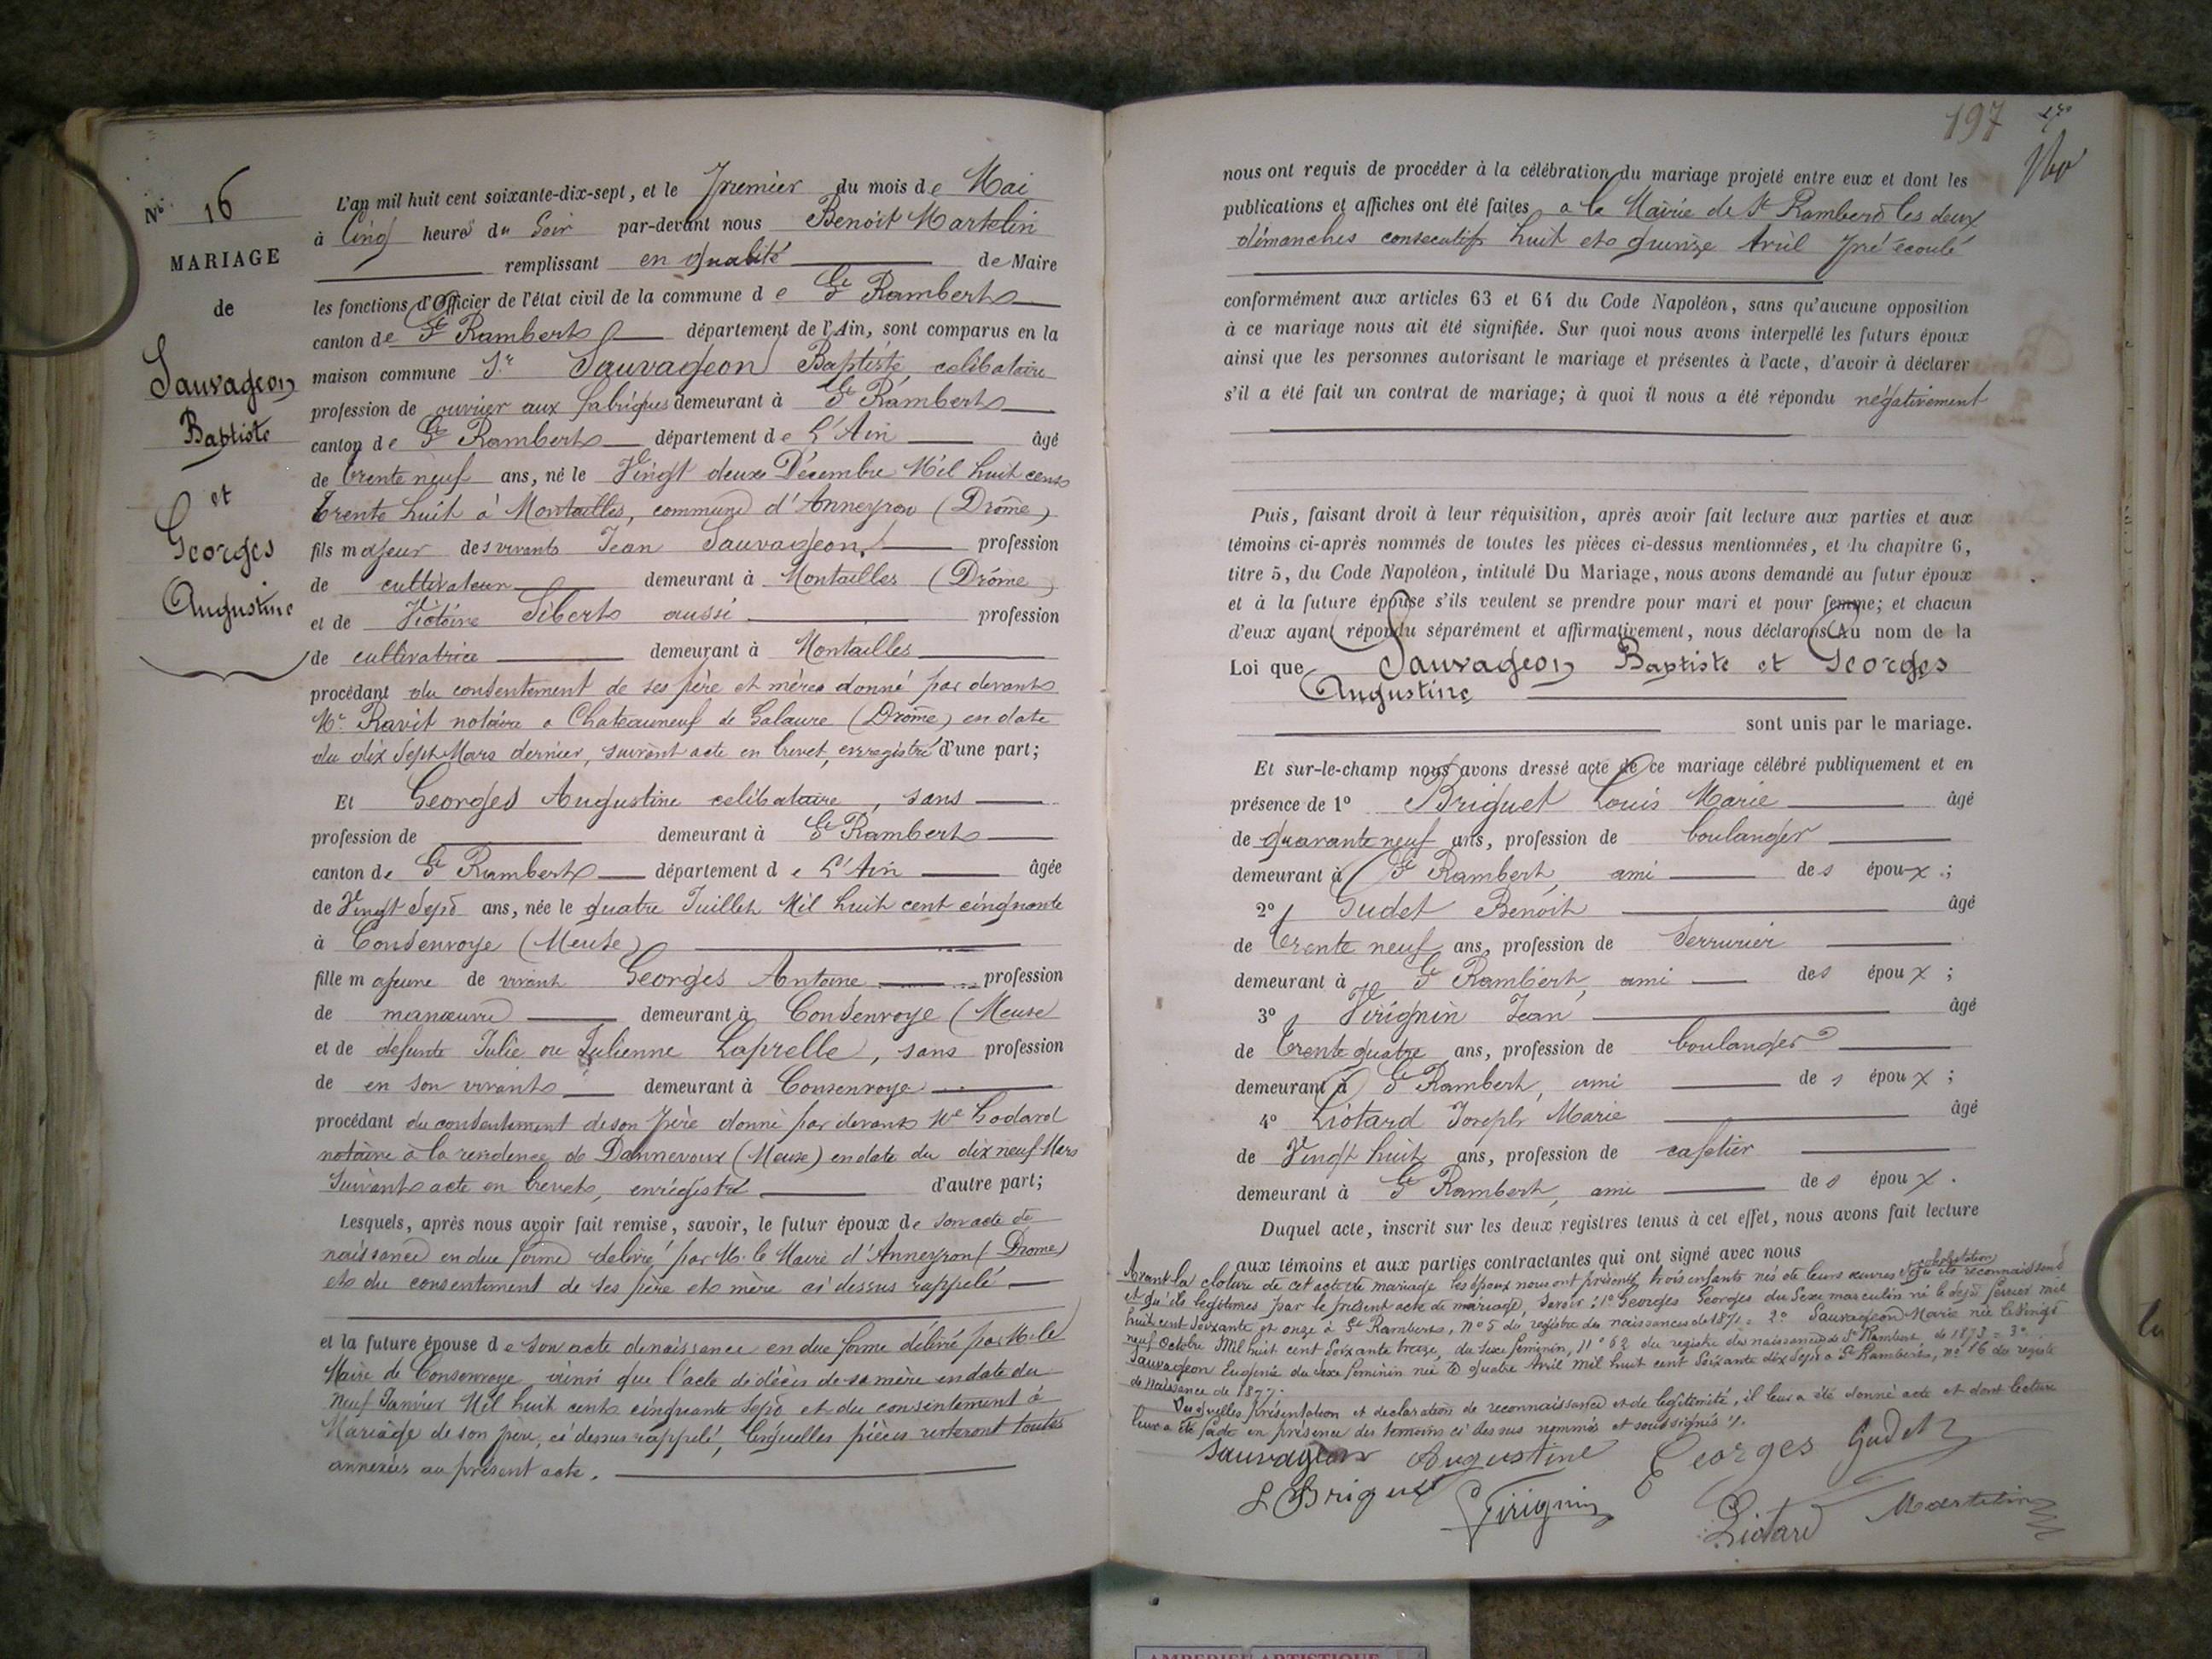 N° 16
MARIAGE
de
Sauvageon
Baptiste
et
Georges
Augustine
L'an mil huit cent soixante-dix-sept, et le Premier du mois de Mai
à Cinq heures du Soir par-devant nous Benoit Martelin
remplissant en qualité de Maire
les fonctions d'Officier de l'état civil de la commune de St Rambert
canton de St Rambert département de l'Ain, sont comparus en la
maison commune Sr Sauvageon Baptiste célibataire
profession de ouvrier aux fabriques demeurant à St Rambert
canton de St Rambert département de L'Ain âgé
de trente neuf ans, né le Vingt deux Décembre Mil huit cent
trente huit à Montailles, commune d'Anneyron (Drôme)
fils majeur des vivants Jean Sauvageon, profession
de cultivateur demeurant à Montailles (Drôme)
et de Victoire Sibert aussi profession
de cultivatrice demeurant à Montailles
procédant du consentement de ses père et mère donné par devant
Me Ravit notaire a Chateauneuf de Galaure (Drôme) en date
du dix Sept Mars dernier, suivant acte en brevet, enregistré d'une part;
Et Georges Augustine celibataire, sans
profession de demeurant à St Rambert
canton de St Rambert département de L'Ain âgée
de Vingt Sept ans, née le quatre Juillet Mil huit cent cinquante
à Consenvoye (Meuse)
fille majeure de vivant Georges Antoine profession
de manœuvre demeurant à Consenvoye (Meuse
et de défunte Julie ou Julienne Laprelle, sans profession
de en son vivant demeurant à Consenvoye
procédant du consentement de son père donné par devant Me Godard
notaire à la residence de Dannevoux (Meuse) en date du dix neuf Mars
Suivant acte en brevet, enrégistré d'autre part;
Lesquels, après nous avoir fait remise, savoir, le futur époux de son acte de
naissance en due forme délivré par M. le Maire d'Anneyron (Drome)
et du consentement de ses père et mère ci dessus rappelé
et la future épouse de son acte de naissance en due forme délivré par M. le
Maire de Consenvoye ainsi que l'acte de décès de sa mère en date du
neuf Janvier Mil huit cent cinquante Sept et du consentement à
Mariage de son père, ci dessus rappelé, lesquelles pièces resteront toutes
annexées au présent acte.
197
nous ont requis de procéder à la célébration du mariage projeté entre eux et dont les
publications et affiches ont été faites a la Mairie de St Rambert les deux
dimanches consecutifs huit et quinze Avril pré écoulé
conformément aux articles 63 et 64 du Code Napoléon, sans qu'aucune opposition
à ce mariage nous ait été signifiée. Sur quoi nous avons interpellé les futurs époux
ainsi que les personnes autorisant le mariage et présentes à l'acte, d'avoir à déclarer
s'il a été fait un contrat de mariage; à quoi il nous a été répondu négativement
Puis, faisant droit à leur réquisition, après avoir fait lecture aux parties et aux
témoins ci-après nommés de toutes les pièces ci-dessus mentionnées, et du chapitre 6,
titre 5, du Code Napoléon, intitulé Du Mariage, nous avons demandé au futur époux
et à la future épouse s'ils veulent se prendre pour mari et pour femme; et chacun
d'eux ayant répondu séparément et affirmativement, nous déclarons Au nom de la
Loi que Sauvageon Baptiste et Georges
Augustine
sont unis par le mariage.
Et sur-le-champ nous avons dressé acte de ce mariage célébré publiquement et en
présence de 1° Briguet Louis Marie âgé
de quarante neuf ans, profession de boulanger
demeurant à St Rambert, ami des époux;
2° Gudet Benoit âgé
de trente neuf ans, profession de Serrurier
demeurant à St Rambert, ami des époux;
3° Virignin Jean âgé
de trente quatre ans, profession de boulanger
demeurant à St Rambert, ami des époux;
4° Liotard Joseph Marie âgé
de Vingt huit ans, profession de cafetier
demeurant à St Rambert, ami des époux.
Duquel acte, inscrit sur les deux registres tenus à cet effet, nous avons fait lecture
aux témoins et aux parties contractantes qui ont signé avec nous
Avant la cloture de cet acte de mariage les époux nous ont présenté trois enfants nés de leurs œuvres qu'ils reconnaissent
et qu'ils legitimes par le présent acte de mariage, Savoir: 1° Georges Georges du Sexe masculin né le Sept fevrier mil
huit cent Soixante et onze à St Rambert, n° 5 du registre des naissances de 1871 = 2° Sauvageon Marie née le Vingt
neuf Octobre Mil huit cent Soixante treize, du sexe féminin, n° 62 du registre des naissances de St Rambert de 1873 = 3°
Sauvageon Eugénie du Sexe féminin née le quatre Avril mil huit cent Soixante dix Sept a St Rambert, n° 16 du registre
de Naissance de 1877.
Desquelles présentation et declaration de reconnaissance et de legitimité, il leur a été donné acte et dont lecture
leur a été faite en présence des temoins ci dessus nommés et soussignés.
Sauvageon Augustine Georges Gudet
L Briguet Virignin Liotard Martelin
AMBERIEU ARTISTIQUE